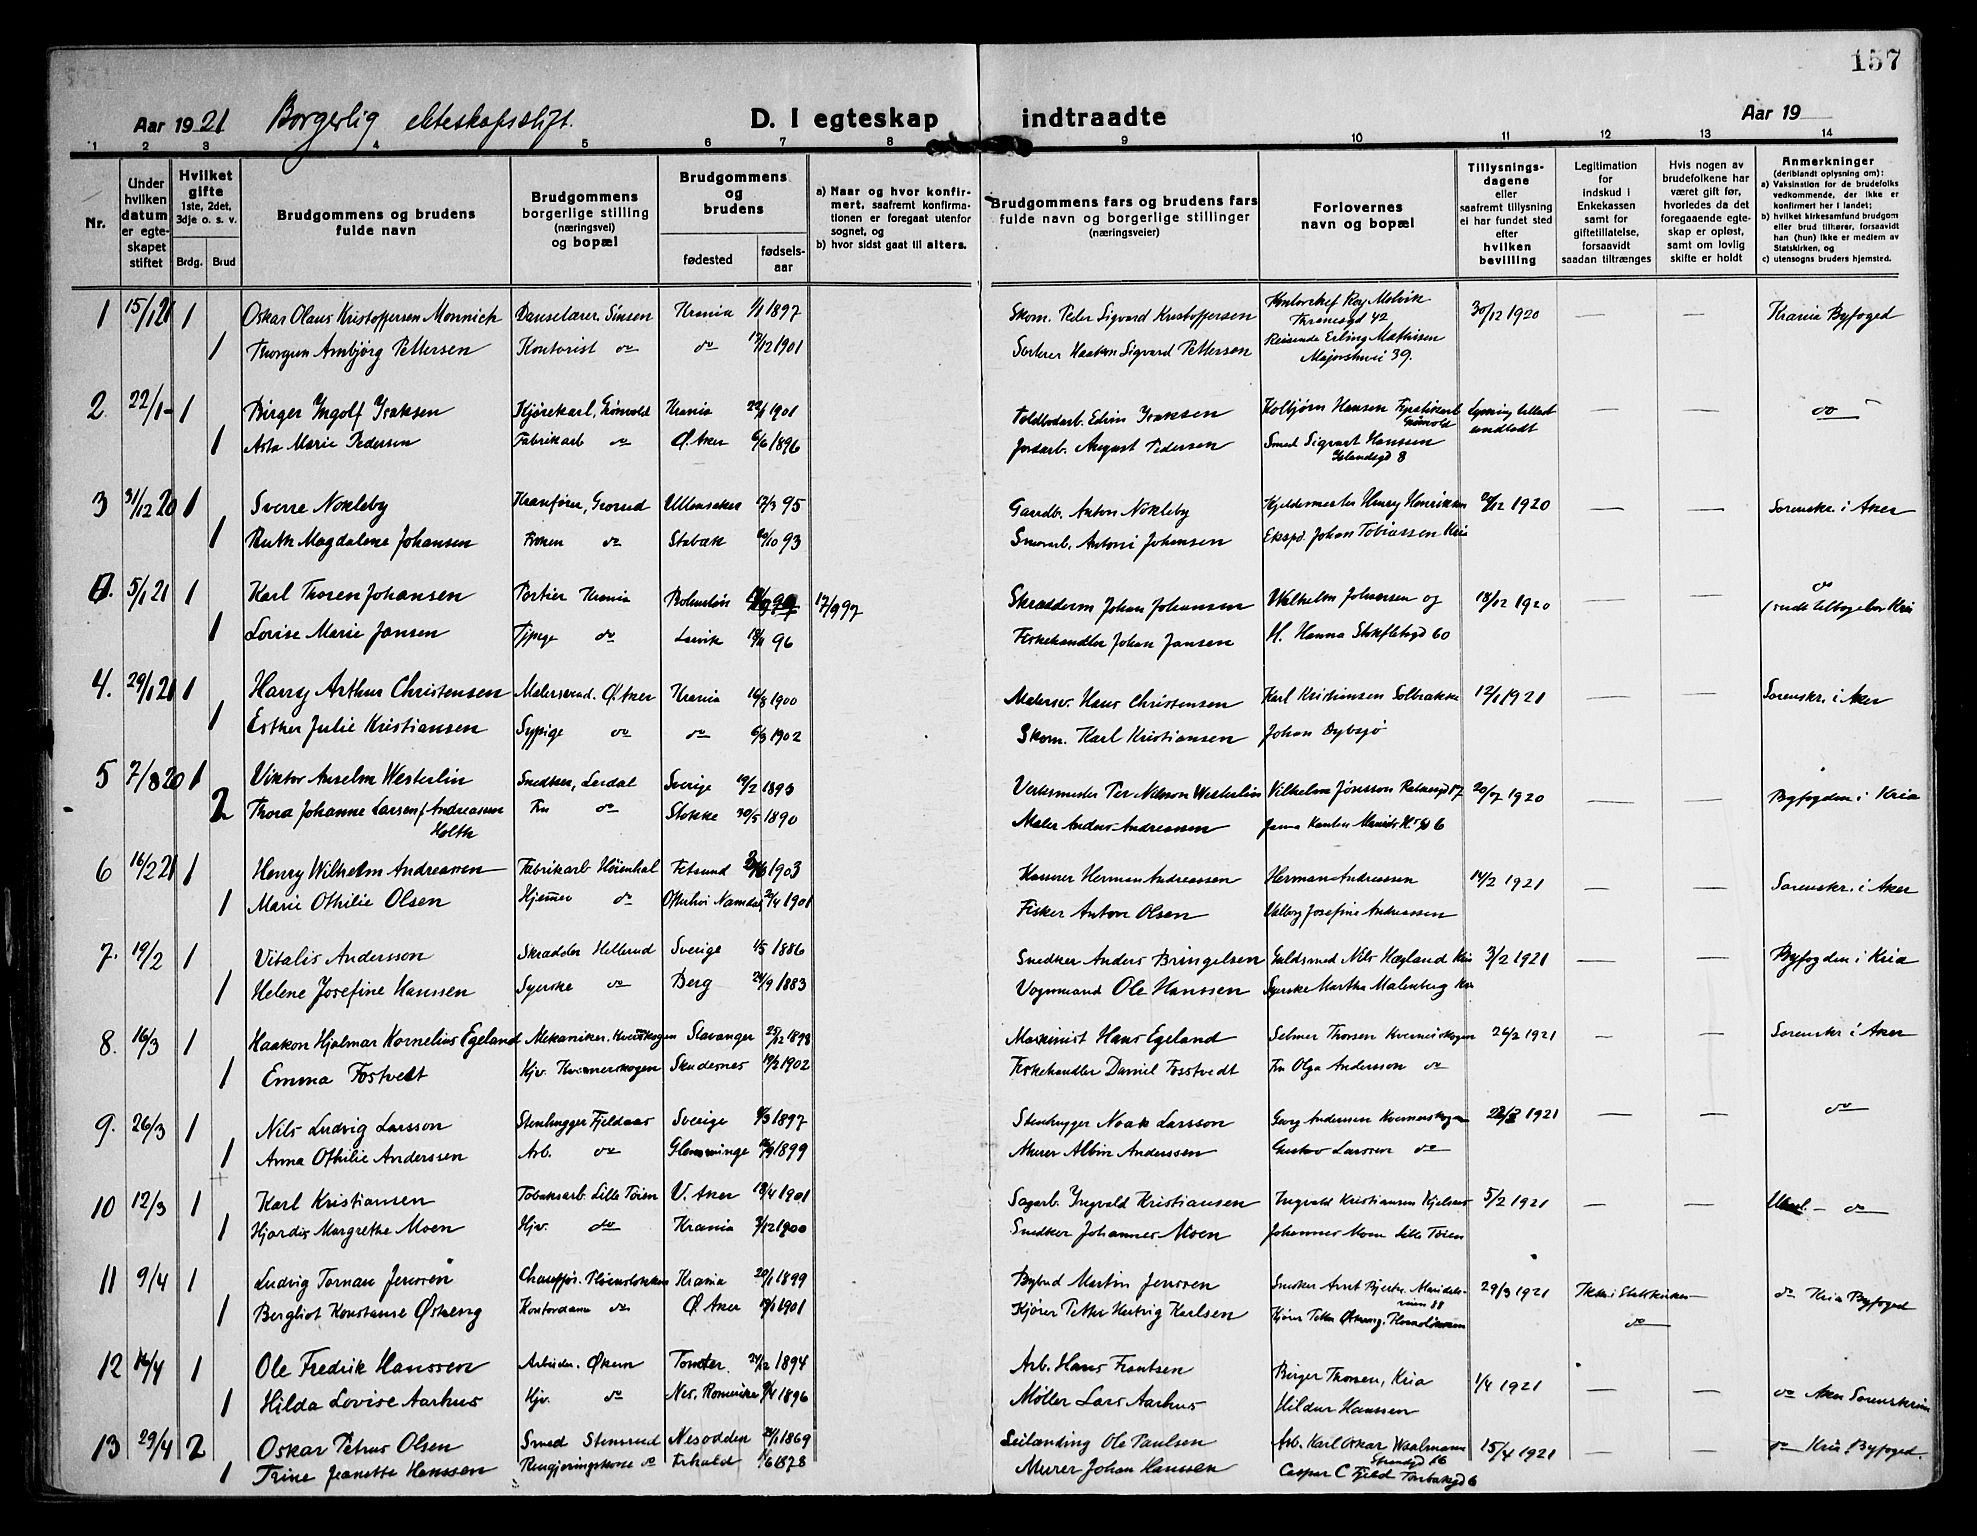 157
Aar 1921 Borgerlig ekteskapsstift. D. I egteskap indtraadte Aar 19
1 2 3 4 5 6 7 8 9 10 11 12 13 14
Nr.
Under hvilken datum er egteskapet stiftet
Hvilket gifte 1ste, 2det, 3dje o. s. v.
Brdg. Brud
Brudgommens og brudens fulde navn
Brudgommens borgerlige stilling (næringsvei) og bopæl
Brudgommens og brudens
fødested fødselsaar
a) Naar og hvor konfirmert, saafremt konfirmationen er foregaat utenfor sognet, og
b) hvor sidst gaat til alters.
Brudgommens fars og brudens fars fulde navn og borgerlige stillinger (næringsveier)
Forlovernes navn og bopæl
Tillysningsdagene eller saafremt tillysning ei har fundet sted efter hvilken bevilling
Legitimation for indskud i Enkekassen samt for giftetillatelse, forsaavidt saadan tiltrænges
Hvis nogen av brudefolkene har været gift før, hvorledes da det foregaaende egteskap er opløst, samt om lovlig skifte er holdt
Anmerkninger (deriblandt oplysning om):
a) Vaksinstion for de brudefolks vedkommende, der ikke er konfirmert her i landet;
b) hvilket kirkesamfund brudgom eller brud tilhører, forsaavidt han (hun) ikke er medlem av Statskirken, og
c) utensogns bruders hjemsted.
1 15/1 21 1 Oskar Olaus Kristoffersen Monnich Danselærer, Sinsen Krania 1/1 1897 Skom. Peder Sigvard Kristoffersen Kontorchef Roy Molvik Thranesgd 42 30/12 1920 — — Krania Byfoged
1 Thorgun Arnbjørg Pettersen Kontorist do do 17/12 1901 Sorterer Haakon Sigvard Pettersen Reisende Erling Mathisen Majorstuvei 39.
2 22/1 - 1 Birger Ingolf Isaksen Kjørekarl, Grønvold Krania 22/1 1901 Toldbodarb. Edvin Isaksen Kolbjørn Hansen Fyrstikarb Grønvold Lysning tillatt undlatt — — do
1 Asta Marie Pedersen Fabrikarb do Ø. Aker 6/6 1896 Jordarb. August Pedersen Smed Sigvart Hanssen Islandsgd 8
3 31/12 20 1 Sverre Nokleby Kranfører, Grorud Ullensaker 17/3 95 Gaardb. Anton Nokleby Kjeldermester Henry Henriksen 20/12 1920 — — Sorenskr. i Aker
1 Ruth Magdalene Johansen Frøken do Stabæk 20/10 93 Snorarb. Antoni Johansen Eksped. Johan Tobiassen Kria
5/1 21 1 Karl Thoren Johansen Portier Krania Bohuslän 17/9 97 Skrædderm Johan Johansen Wilhelm Johansen og 18/12 1920 — — do
1 Lovise Marie Jansen Tjpige do Larvik 18/11 96 Fiskehandler Johan Jansen H. Hanna Stokfletsgd 60
4. 29/1 21 1 Harry Arthur Christensen Malersvend. Ø. Aker Krania 16/8 1900 Malersv. Hans Christensen Karl Kristiansen Solbakke 12/1 1921 — — Sorenskr. i Aker
1 Esther Julie Kristiansen Sypige do do 6/3 1902 Skom. Karl Kristiansen Johan Dybsjø
5 7/8 20 1 Viktor Anselm Westerlin Snedker, Lerdal Sverige 19/2 1893 Verksmester Per Nilsson Westerlin Vilhelm Jønsson 20/7 1920 — — Byfogden i Kria
2 Thora Johanne Larsen f. Andreassen Holth Fru do Stokke 30/5 1890 Maler Anders Andreassen
6 16/2 21 1 Henry Wilhelm Andreassen Fabrikarb Høienhal Fetsund 1903 Kasserer Herman Andreassen Herman Andreassen 14/2 1921 — — Sorenskr. i Aker
1 Marie Othilie Olsen Hjemme do 21/4 1901 Fisker Anton Olsen Valborg Josefine Andreassen
7. 19/2 1 Vitalis Andersson Skrædder Hellerud Sverige 1/5 1886 Snedker Anders Bringelsen Guldsmed Nils Hægland Kria 3/2 1921 — — Byfogden i Kria
1 Helene Josefine Hanssen Syerske do Berg 24/9 1883 Vognmand Ole Hanssen Syerske Martha Malmberg Kria
8. 16/3 1 Haakon Hjalmar Kornelius Egeland Mekaniker. Kvernskogen Stavanger 25/12 1898 Maskinist Hans Egeland Selmer Thorsen Kvernerskogen 26/2 1921 — — Sorenskr i Aker
1 Emma Fostvedt Hjv. Kvernerskogen Skudesnes 19/2 1902 Fiskehandler Daniel Fosstvedt Fru Olga Andersson do
9. 26/3 1 Nils Ludvig Larsson Stenhugger Fjeldaas Sverige 4/3 1897 Stenhugger Noak Larsson Georg Andersen Kvernerskogen 1921 — — do
1 Anna Othilie Anderssen Arb. do Glemminge 1899 Murer Albin Anderssen Gustav Larssen do
10 12/3 1 Karl Kristiansen Tobaksarb. Lille Tøien V. Aker 18/4 1901 Sagarb. Yngvald Kristiansen Ingvald Kristiansen Kjelsaas 5/2 1921 — — do
1 Hjordis Margrethe Moen Hjv. do Krania 2/12 1900 Snedker Johannes Moen Johannes Moen Lille Tøien
11 9/4 1 Ludvig Tornau Jenssen Chauffør. Krania 20/1 1899 Bybud Martin Jenssen Snekker Arnt Bjertn. Maridalsveien 88 29/3 1921 Ikke i Statskirken do Kria Byfoged
1 Bergliot Konstanse Østeng Kontordame do Ø. Aker 19/1 1901 Kjører Petter Hertvig Karlsen Kjører Petter Østeng. do
12 16/4 1 Ole Fredrik Hanssen Arbeider. Økern Tomter. 24/12 1894 Arb. Hans Frantsen Birger Thorsen, Kria 1/4 1921 — — do Aker Sorenskriver
1 Hilda Lovise Aarhus Hjv. do Nes. Romerike 9/4 1896 Møller Lars Aarhus Hildur Hanssen
13 29/4 2 Oskar Petrus Olsen Smed Stensrud Nesodden 24/1 1869 Ole Paulsen Arb. Karl Oskar Waalmann Strandgd 16 15/4 1921 do Kria Byfoged.
1 Trine Jeanette Hanssen Rengjøringskone do 1/6 1878 Murer Johan Hanssen Casper C Fjeld